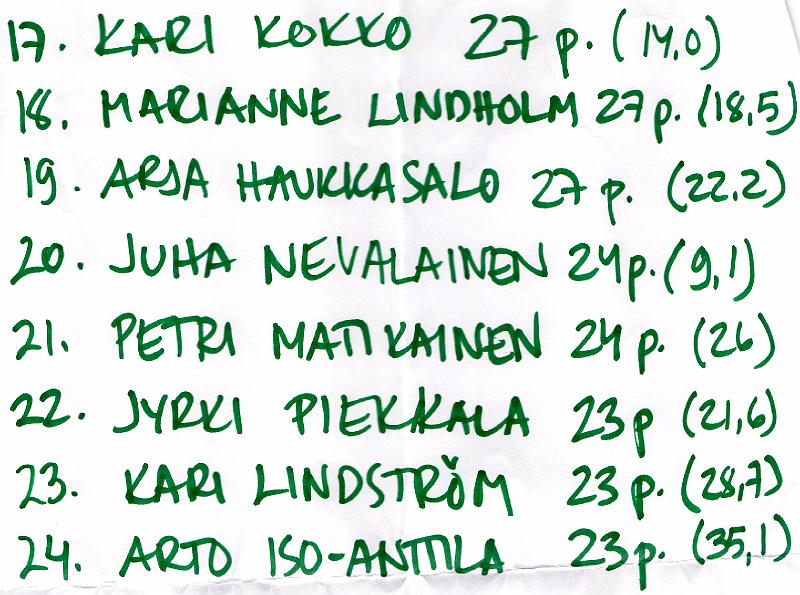 17. KARI KOKKO 27 p. (14,0)
18. MARIANNE LINDHOLM 27 p. (18,5)
19. ARJA HAUKKASALO 27 p. (22.2)
20. JUHA NEVALAINEN 24 p. (9,1)
21. PETRI MATIKAINEN 24 p. (26)
22. JYRKI PIEKKALA 23 p (21,6)
23. KARI LINDSTRÖM 23 p. (28,7)
24. ARTO ISO-ANTTILA 23 p. (35,1)